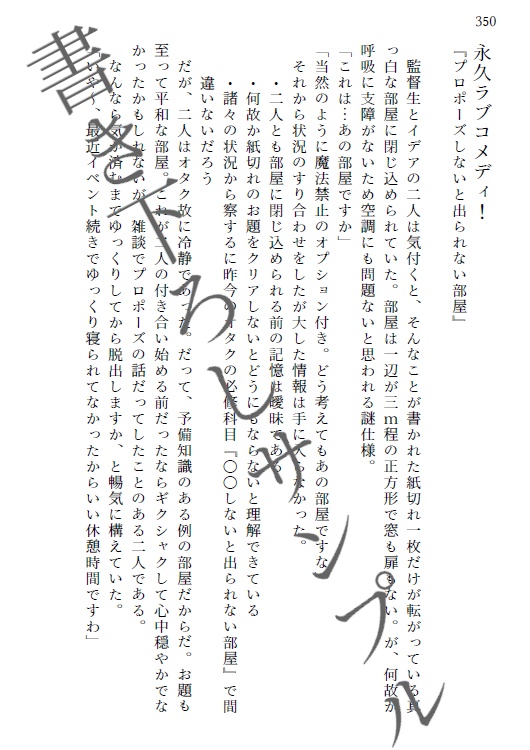 350
永久ラブコメディ！
『プロポーズしないと出られない部屋』
監督生とイデアの二人は気付くと、そんなことが書かれた紙切れ一枚だけが転がっている真
っ白な部屋に閉じ込められていた。部屋は一辺が三ｍ程の正方形で窓も扉もない。が、何故か
呼吸に支障がないため空調にも問題ないと思われる謎仕様。
「これは…あの部屋ですか」
「当然のように魔法禁止のオプション付き。どう考えてもあの部屋ですな
それから状況のすり合わせをしたが大した情報は手に入らなかった。
・二人とも部屋に閉じ込められる前の記憶は曖昧である
・何故か紙切れのお題をクリアしないとどうにもならないと理解できている
・諸々の状況から察するに昨今のオタクの必修科目『〇〇しないと出られない部屋』で間
違いないだろう
だが、二人はオタク故に冷静であった。だって、予備知識のある例の部屋だからだ。お題も
至って平和な部屋。これが二人の付き合い始める前だったならギクシャクして心中穏やかでな
かったかもしれないが、雑談でプロポーズの話だってしたことのある二人である。
なんなら気が済むまでゆっくりしてから脱出しますか、と暢気に構えていた。
「いや～、最近イベント続きでゆっくり寝られてなかったからいい休憩時間ですわ」
書き下ろしサンプル